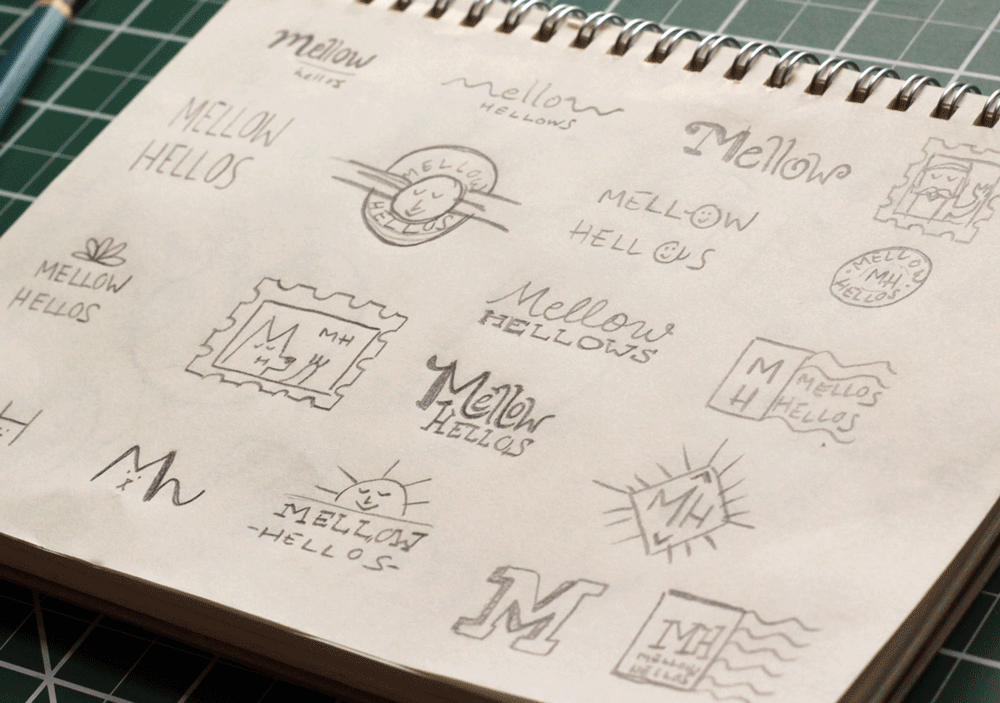 Mellow
hellos
Mellow
HELLOWS
MELLOW
HELLOS
Mellow
MELLOW
HELLOS
MELLOW
HELLOS
MELLOW
MH
HELLOS
MELLOW
HELLOS
Mellow
HELLOWS
M MH
H
Mellow
HELLOS
M
H
MELLOS
HELLOS
Mh
MELLOW
-HELLOS-
MH
M
MH
MELLOW
HELLOS